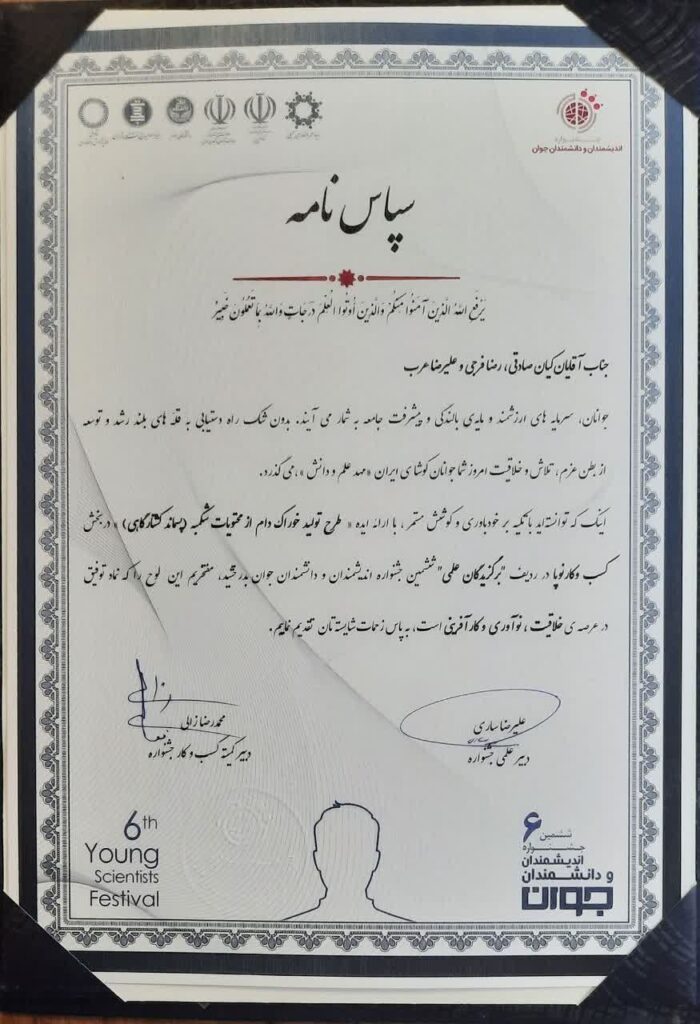 جشنواره
اندیشمندان و دانشمندان جوان
سپاس نامه
یَرْفَعِ اللهُ الَّذینَ آمَنُوا مِنْکُمْ وَالَّذینَ أُوتُوا الْعِلْمَ دَرَجَاتٍ وَاللهُ بِمَا تَعْمَلُونَ خَبِیرٌ
جناب آقایان کیان صادقی، رضا فرجی و علیرضا عرب
جوانان، سرمایه های ارزشمند و مایه‌ی بالندگی و پیشرفت جامعه به شمار می آیند. بدون شک راه دستیابی به قله های بلند رشد و توسعه
از بطن عزم، تلاش و خلاقیت امروز شما جوانان کوشای ایران «مهد علم و دانش»، می گذرد.
اینک که توانسته‌اید با تکیه بر خودباوری و کوشش مستمر، با ارائه ایده « طرح تولید خوراک دام از محتویات شکمبه (پسماند کشتارگاهی) » در بخش
کسب و کار نوپا در ردیف "برگزیدگان علمی" ششمین جشنواره اندیشمندان و دانشمندان جوان بدرخشید، مفتخریم این لوح را که نماد توفیق
در عرصه ی خلاقیت، نوآوری و کارآفرینی است، به پاس زحمات شایسته تان تقدیم نماییم.
علیرضا ساری
دبیر علمی جشنواره
محمدرضا زالی
دبیر کمیته کسب و کار جشنواره
۶ ششمین
جشنواره
اندیشمندان
و دانشمندان
جوان
6th
Young
Scientists
Festival